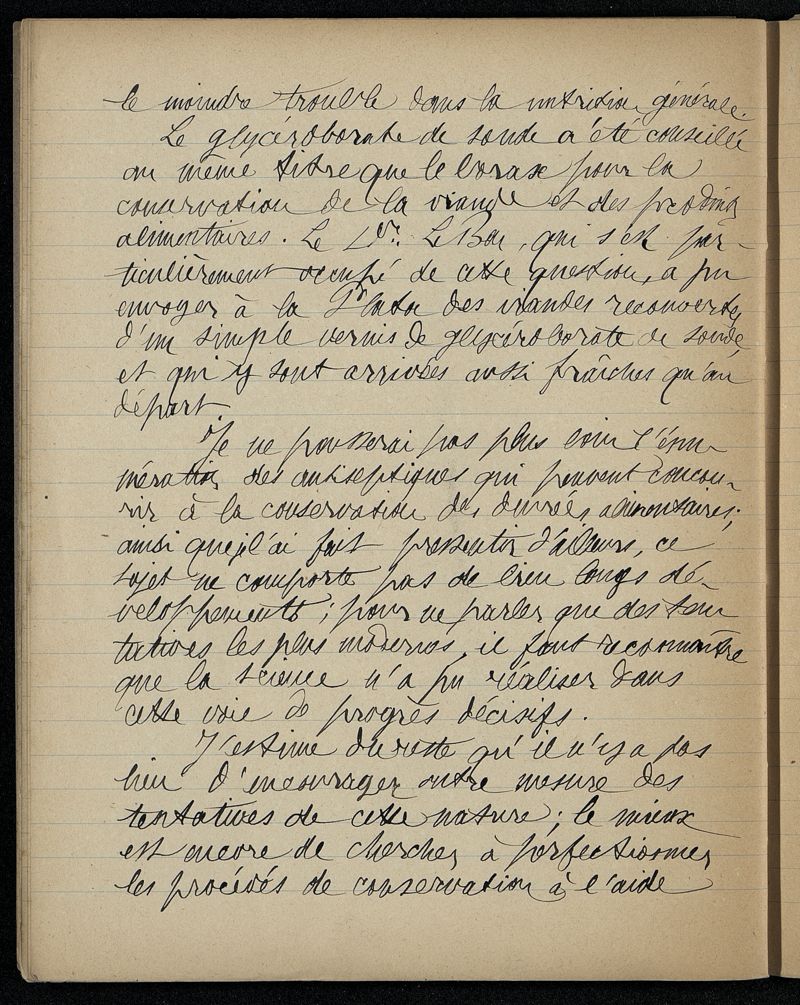 le moindre trouble dans la nutrition générale.
Le glycéroborate de soude a été conseillé
au même titre que le borax pour la
conservation de la viande et des produits
alimentaires. Le Dr. Le Bon, qui s'est par-
ticulièrement occupé de cette question, a pu
envoyer à la Plata des viandes recouvertes
d'un simple vernis de glycéroborate de soude,
et qui y sont arrivées aussi fraîches qu'au
départ.
Je ne pousserai pas plus loin l'énu-
mération des antiseptiques qui peuvent concou-
rir à la conservation des denrées alimentaires;
ainsi que je l'ai fait pressentir d'ailleurs, ce
sujet ne comporte pas de bien longs dé-
veloppements; pour ne parler que des ten
tatives les plus modernes, il faut reconnaître
que la science n'a pu réaliser dans
cette voie de progrès décisifs.
J'estime du reste qu'il n'y a pas
lieu d'encourager outre mesure des
tentatives de cette nature; le mieux
est encore de chercher à perfectionner
les procédés de conservation à l'aide